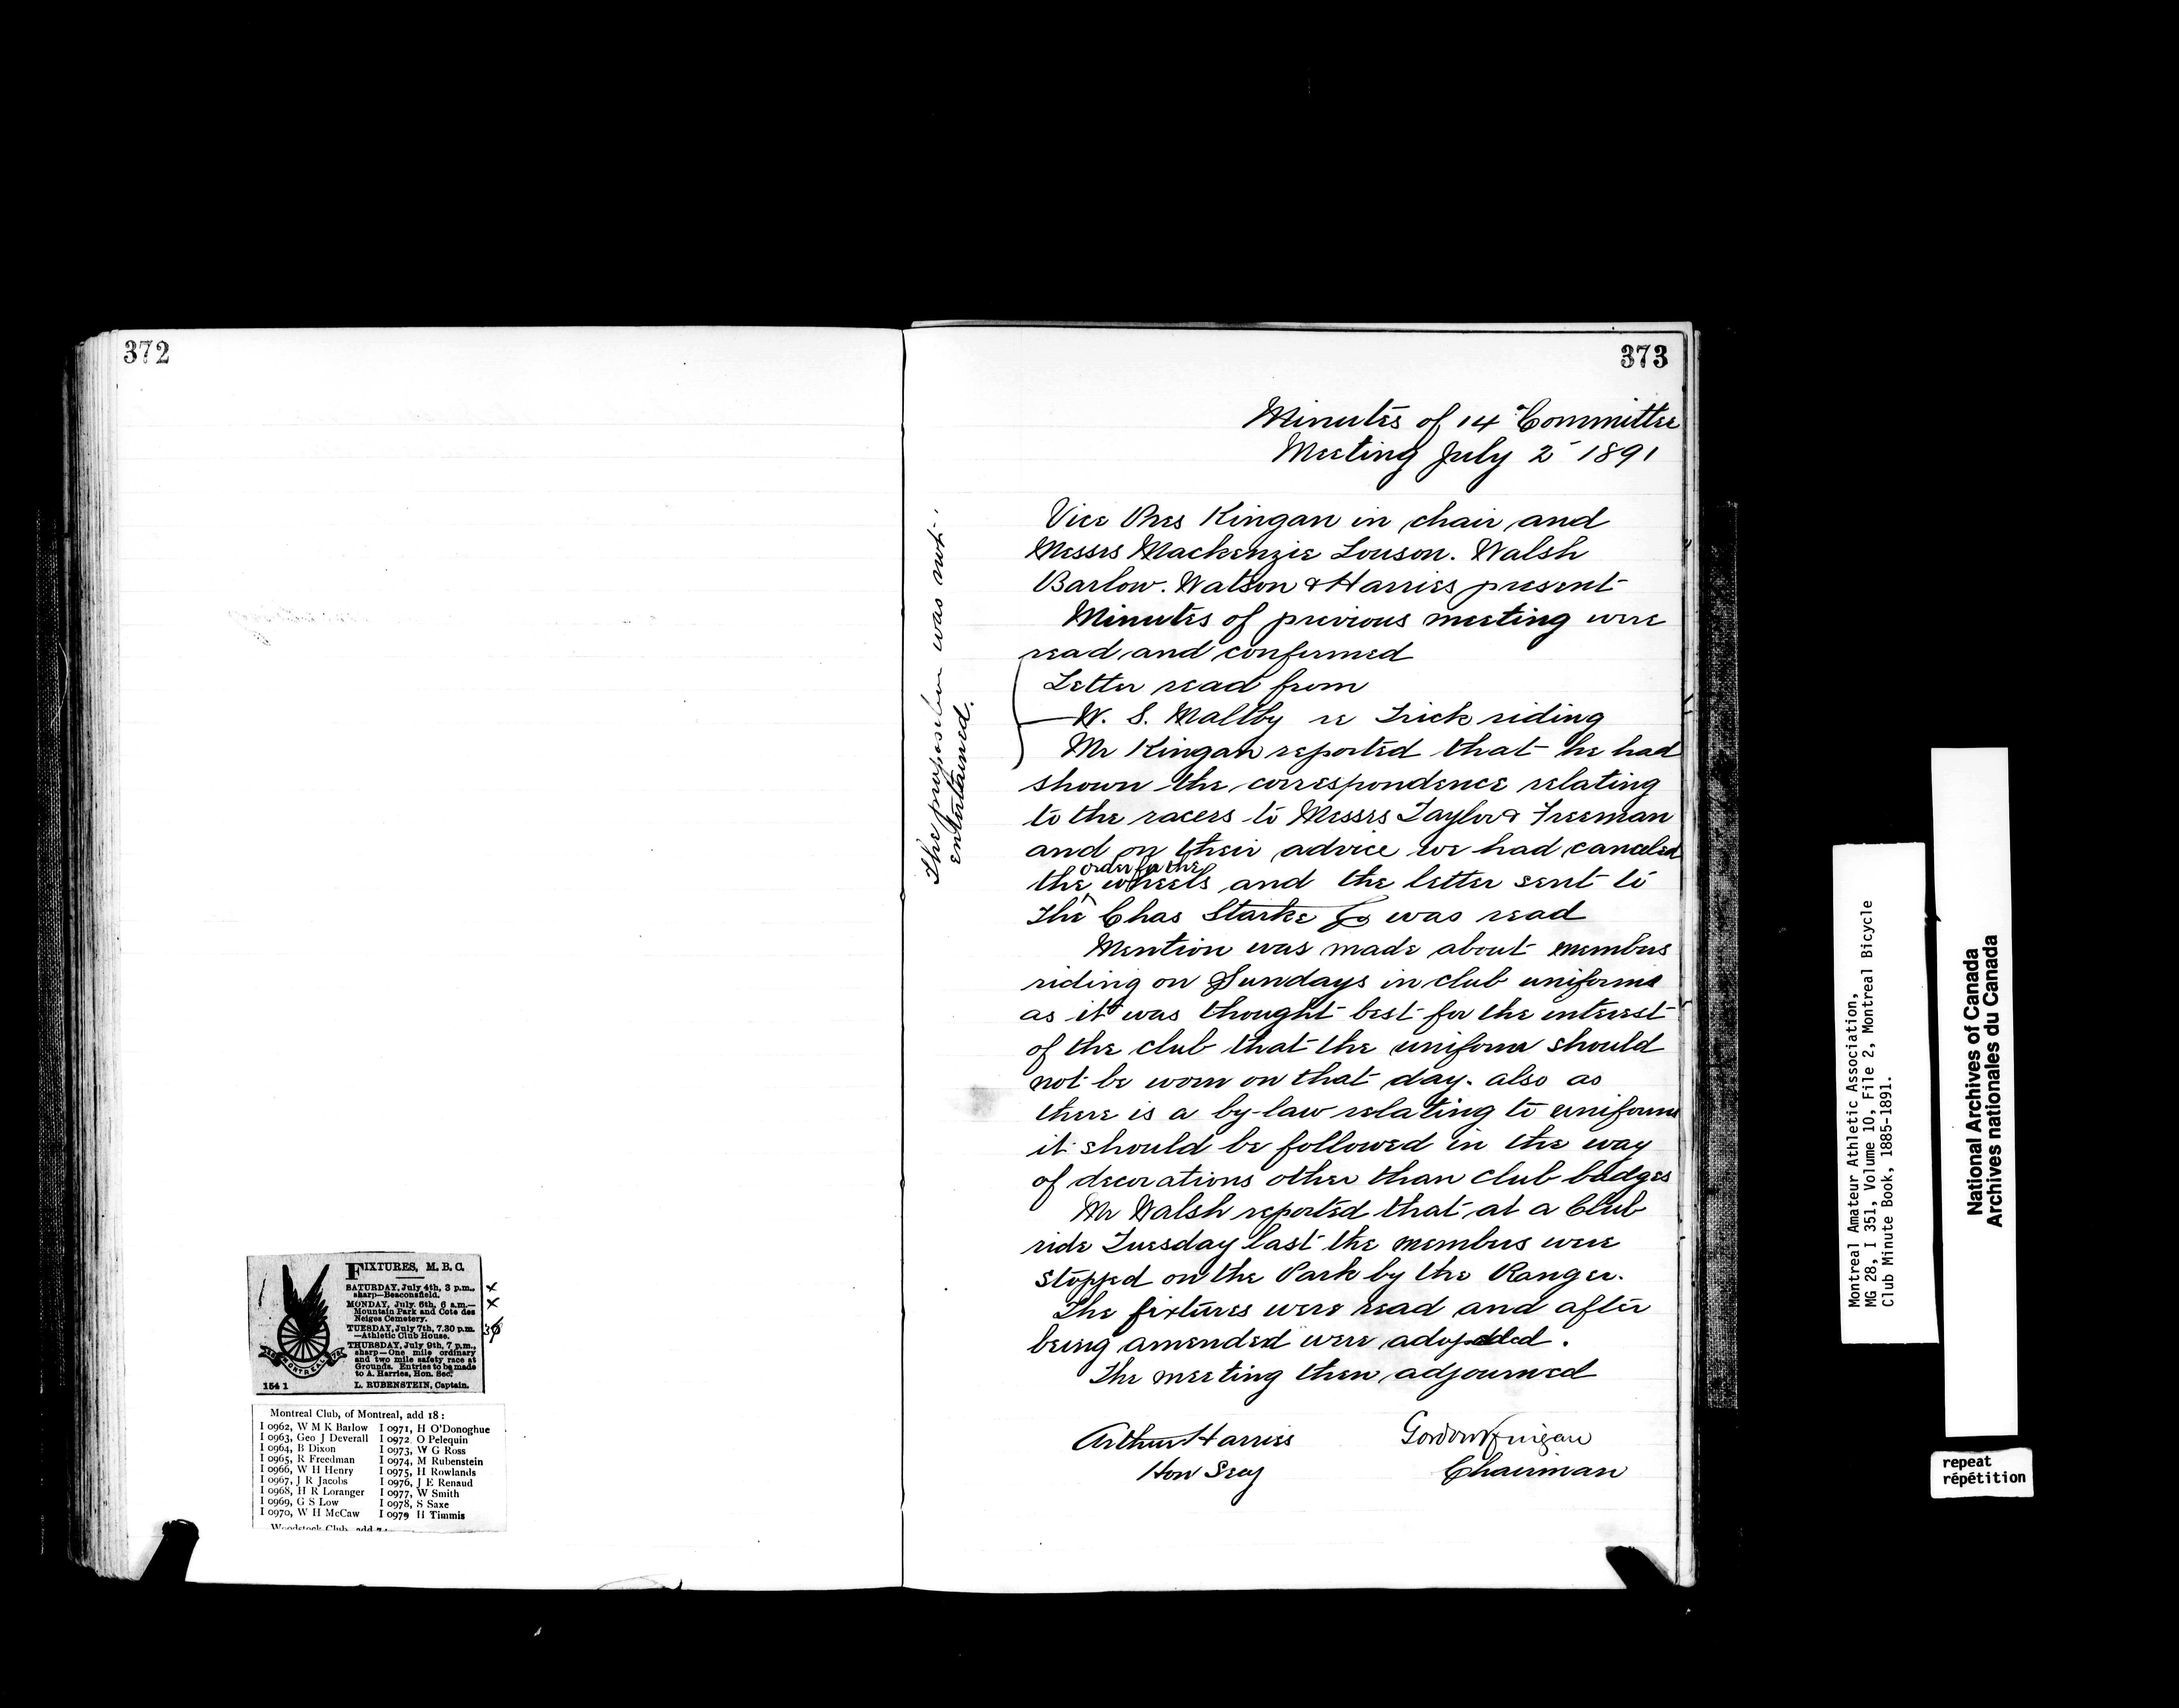 372
FIXTURES, M. B. C.
SATURDAY, July 4th, 3 p.m.,
sharp—Beaconsfield.
MONDAY, July 6th, 6 a.m.—
Mountain Park and Cote des
Neiges Cemetery.
TUESDAY, July 7th, 7.30 p.m.
—Athletic Club House.
THURSDAY, July 9th, 7 p.m.,
sharp—One mile ordinary
and two mile safety race at
Grounds. Entries to be made
to A. Harries, Hon. Sec.
154 1 L. RUBENSTEIN, Captain.
MONTREAL
Montreal Club, of Montreal, add 18:
I 0962, W M K Barlow I 0971, H O'Donoghue
I 0963, Geo J Deverall I 0972 O Pelequin
I 0964, B Dixon I 0973, W G Ross
I 0965, R Freedman I 0974, M Rubenstein
I 0966, W H Henry I 0975, H Rowlands
I 0967, J R Jacobs I 0976, J E Renaud
I 0968, H R Loranger I 0977, W Smith
I 0969, G S Low I 0978, S Saxe
I 0970, W H McCaw I 0979 H Timmis
Woodstock Club, add
373
Minutes of 14 Committee
Meeting July 2 1891
Vice Pres Kingan in chair and
Messrs Mackenzie Louson. Walsh
Barlow. Watson & Harries present
Minutes of previous meeting were
read and confirmed
Letter read from
W. S. Maltby re Trick riding
The proposition was not
entertained.
Mr Kingan reported that he had
shown the correspondence relating
to the racers to Messrs Taylor & Freeman
and on their advice we had canceled
the order for the wheels and the letter sent to
The Chas Starke Co was read
Mention was made about members
riding on Sundays in club uniforms
as it was thought best for the interest
of the club that the uniform should
not be worn on that day. also as
there is a by-law relating to uniforms
it should be followed in the way
of decorations other than club badges
Mr Walsh reported that at a Club
ride Tuesday last the members were
stopped on the Park by the Ranger.
The fixtures were read and after
being amended were adopted.
The meeting then adjourned
Arthur Harries Gordon Kingan
Hon Secy Chairman
Montreal Amateur Athletic Association,
MG 28, I 351, Volume 10, File 2, Montreal Bicycle
Club Minute Book, 1885-1891.
National Archives of Canada
Archives nationales du Canada
repeat
répétition